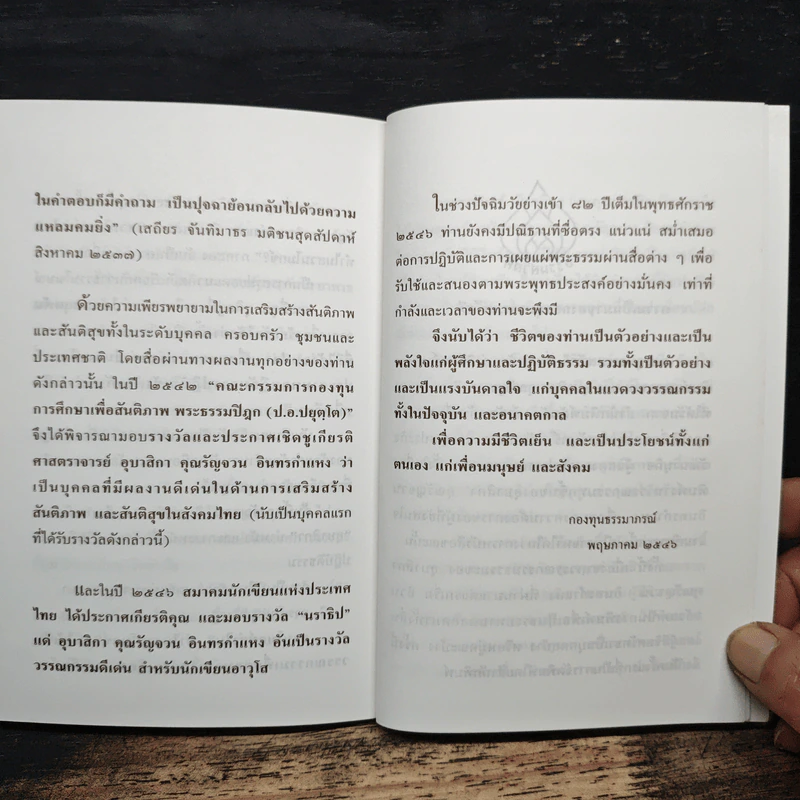 ในคำตอบก็มีคำถาม เป็นปุจฉาย้อนกลับไปด้วยความ
แหลมคมยิ่ง” (เสถียร จันทิมาธร มติชนสุดสัปดาห์
สิงหาคม ๒๕๓๗)
ด้วยความเพียรพยายามในการเสริมสร้างสันติภาพ
และสันติสุขทั้งในระดับบุคคล ครอบครัว ชุมชนและ
ประเทศชาติ โดยสื่อผ่านทางผลงานทุกอย่างของท่าน
ดังกล่าวนั้น ในปี ๒๕๔๒ “คณะกรรมการกองทุน
การศึกษาเพื่อสันติภาพ พระธรรมปิฎก (ป.อ.ปยุตฺโต)”
จึงได้พิจารณามอบรางวัลและประกาศเชิดชูเกียรติ
ศาสตราจารย์ อุบาสิกา คุณรัญจวน อินทรกำแหง ว่า
เป็นบุคคลที่มีผลงานดีเด่นในด้านการเสริมสร้าง
สันติภาพ และสันติสุขในสังคมไทย (นับเป็นบุคคลแรก
ที่ได้รับรางวัลดังกล่าวนี้)
และในปี ๒๕๔๖ สมาคมนักเขียนแห่งประเทศ
ไทย ได้ประกาศเกียรติคุณ และมอบรางวัล “นราธิป”
แด่ อุบาสิกา คุณรัญจวน อินทรกำแหง อันเป็นรางวัล
วรรณกรรมดีเด่น สำหรับนักเขียนอาวุโส
ในช่วงปัจฉิมวัยย่างเข้า ๘๒ ปีเต็มในพุทธศักราช
๒๕๔๖ ท่านยังคงมีปณิธานที่ซื่อตรง แน่วแน่ สม่ำเสมอ
ต่อการปฏิบัติและการเผยแผ่พระธรรมผ่านสื่อต่าง ๆ เพื่อ
รับใช้และสนองตามพระพุทธประสงค์อย่างมั่นคง เท่าที่
กำลังและเวลาของท่านจะพึงมี
จึงนับได้ว่า ชีวิตของท่านเป็นตัวอย่างและเป็น
พลังใจแก่ผู้ศึกษาและปฏิบัติธรรม รวมทั้งเป็นตัวอย่าง
และเป็นแรงบันดาลใจ แก่บุคคลในแวดวงวรรณกรรม
ทั้งในปัจจุบัน และอนาคตกาล
เพื่อความมีชีวิตเย็น และเป็นประโยชน์ทั้งแก่
ตนเอง แก่เพื่อนมนุษย์ และสังคม
กองทุนธรรมาภรณ์
พฤษภาคม ๒๕๔๖